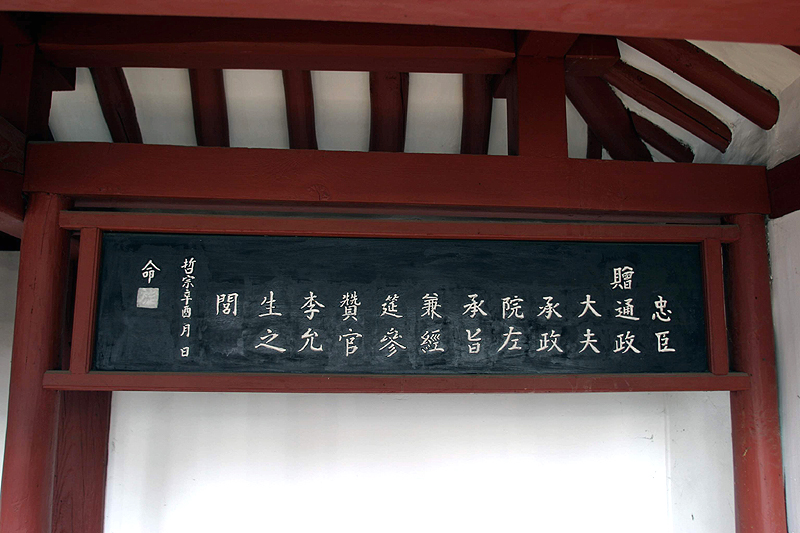 忠臣
贈通政
大夫
承政
院左
承旨
兼經
筵參
贊官
李允
生之
閭
哲宗辛酉月日
命